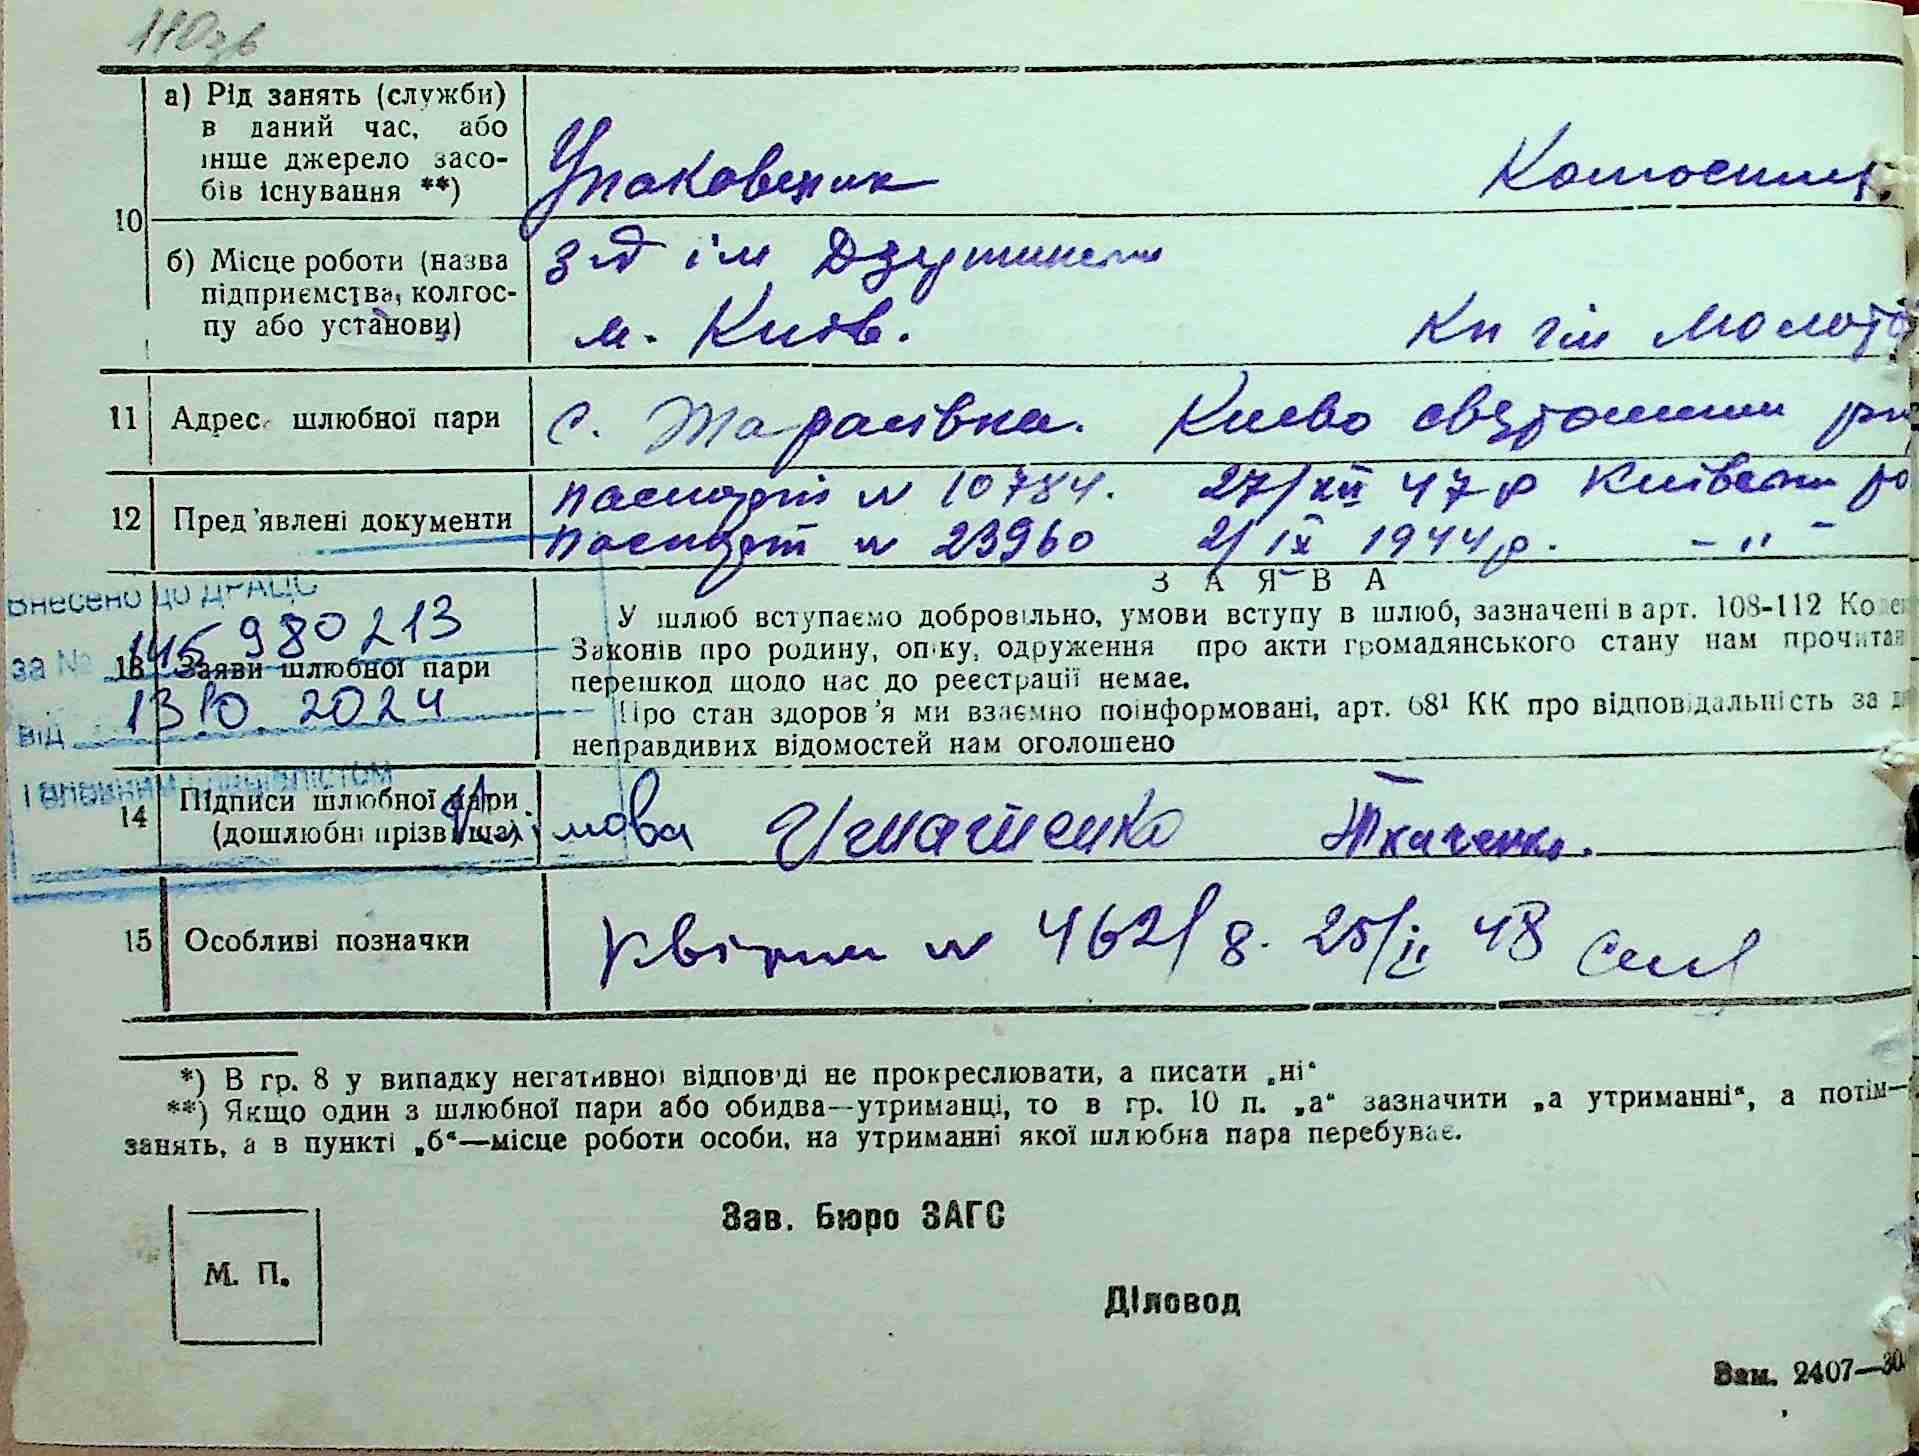 110зв
а) Рід занять (служби)
в даний час, або
інше джерело засо-
бів існування **)
Упаковщик
10
б) Місце роботи (назва
підприємства, колгос-
пу або установи)
з-д ім
м. Київ.
Кп ім Молото
11 Адрес шлюбної пари
с. Тарасівка. Києво
12 Пред'явлені документи
паспорт № 10784. 27/XII 47 р Київским
паспорт № 23960 2/IX 1944 р. -"-
Внесено до ДРАЦС
за № 145980213
від 13.10.2024
Головним спеціалістом
13 Заяви шлюбної пари
ЗАЯВА
У шлюб вступаємо добровільно, умови вступу в шлюб, зазначені в арт. 108-112 Кодек
Законів про родину, опіку, одруження про акти громадянського стану нам прочитан
перешкод щодо нас до реєстрації немає.
Про стан здоров'я ми взаємно поінформовані, арт. 68¹ КК про відповідальність за д
неправдивих відомостей нам оголошено
14 Підписи шлюбної пари
(дошлюбні прізвища)
Игнатенко Ткаченко.
15 Особливі позначки
№ 462/8. 25/II 48
*) В гр. 8 у випадку негативної відповіді не прокреслювати, а писати „ні“
**) Якщо один з шлюбної пари або обидва—утриманці, то в гр. 10 п. „а“ зазначити „а утриманні“, а потім—
занять, а в пункті „б“—місце роботи особи, на утриманні якої шлюбна пара перебуває.
Зав. Бюро ЗАГС
М. П.
Діловод
Зам. 2407—30